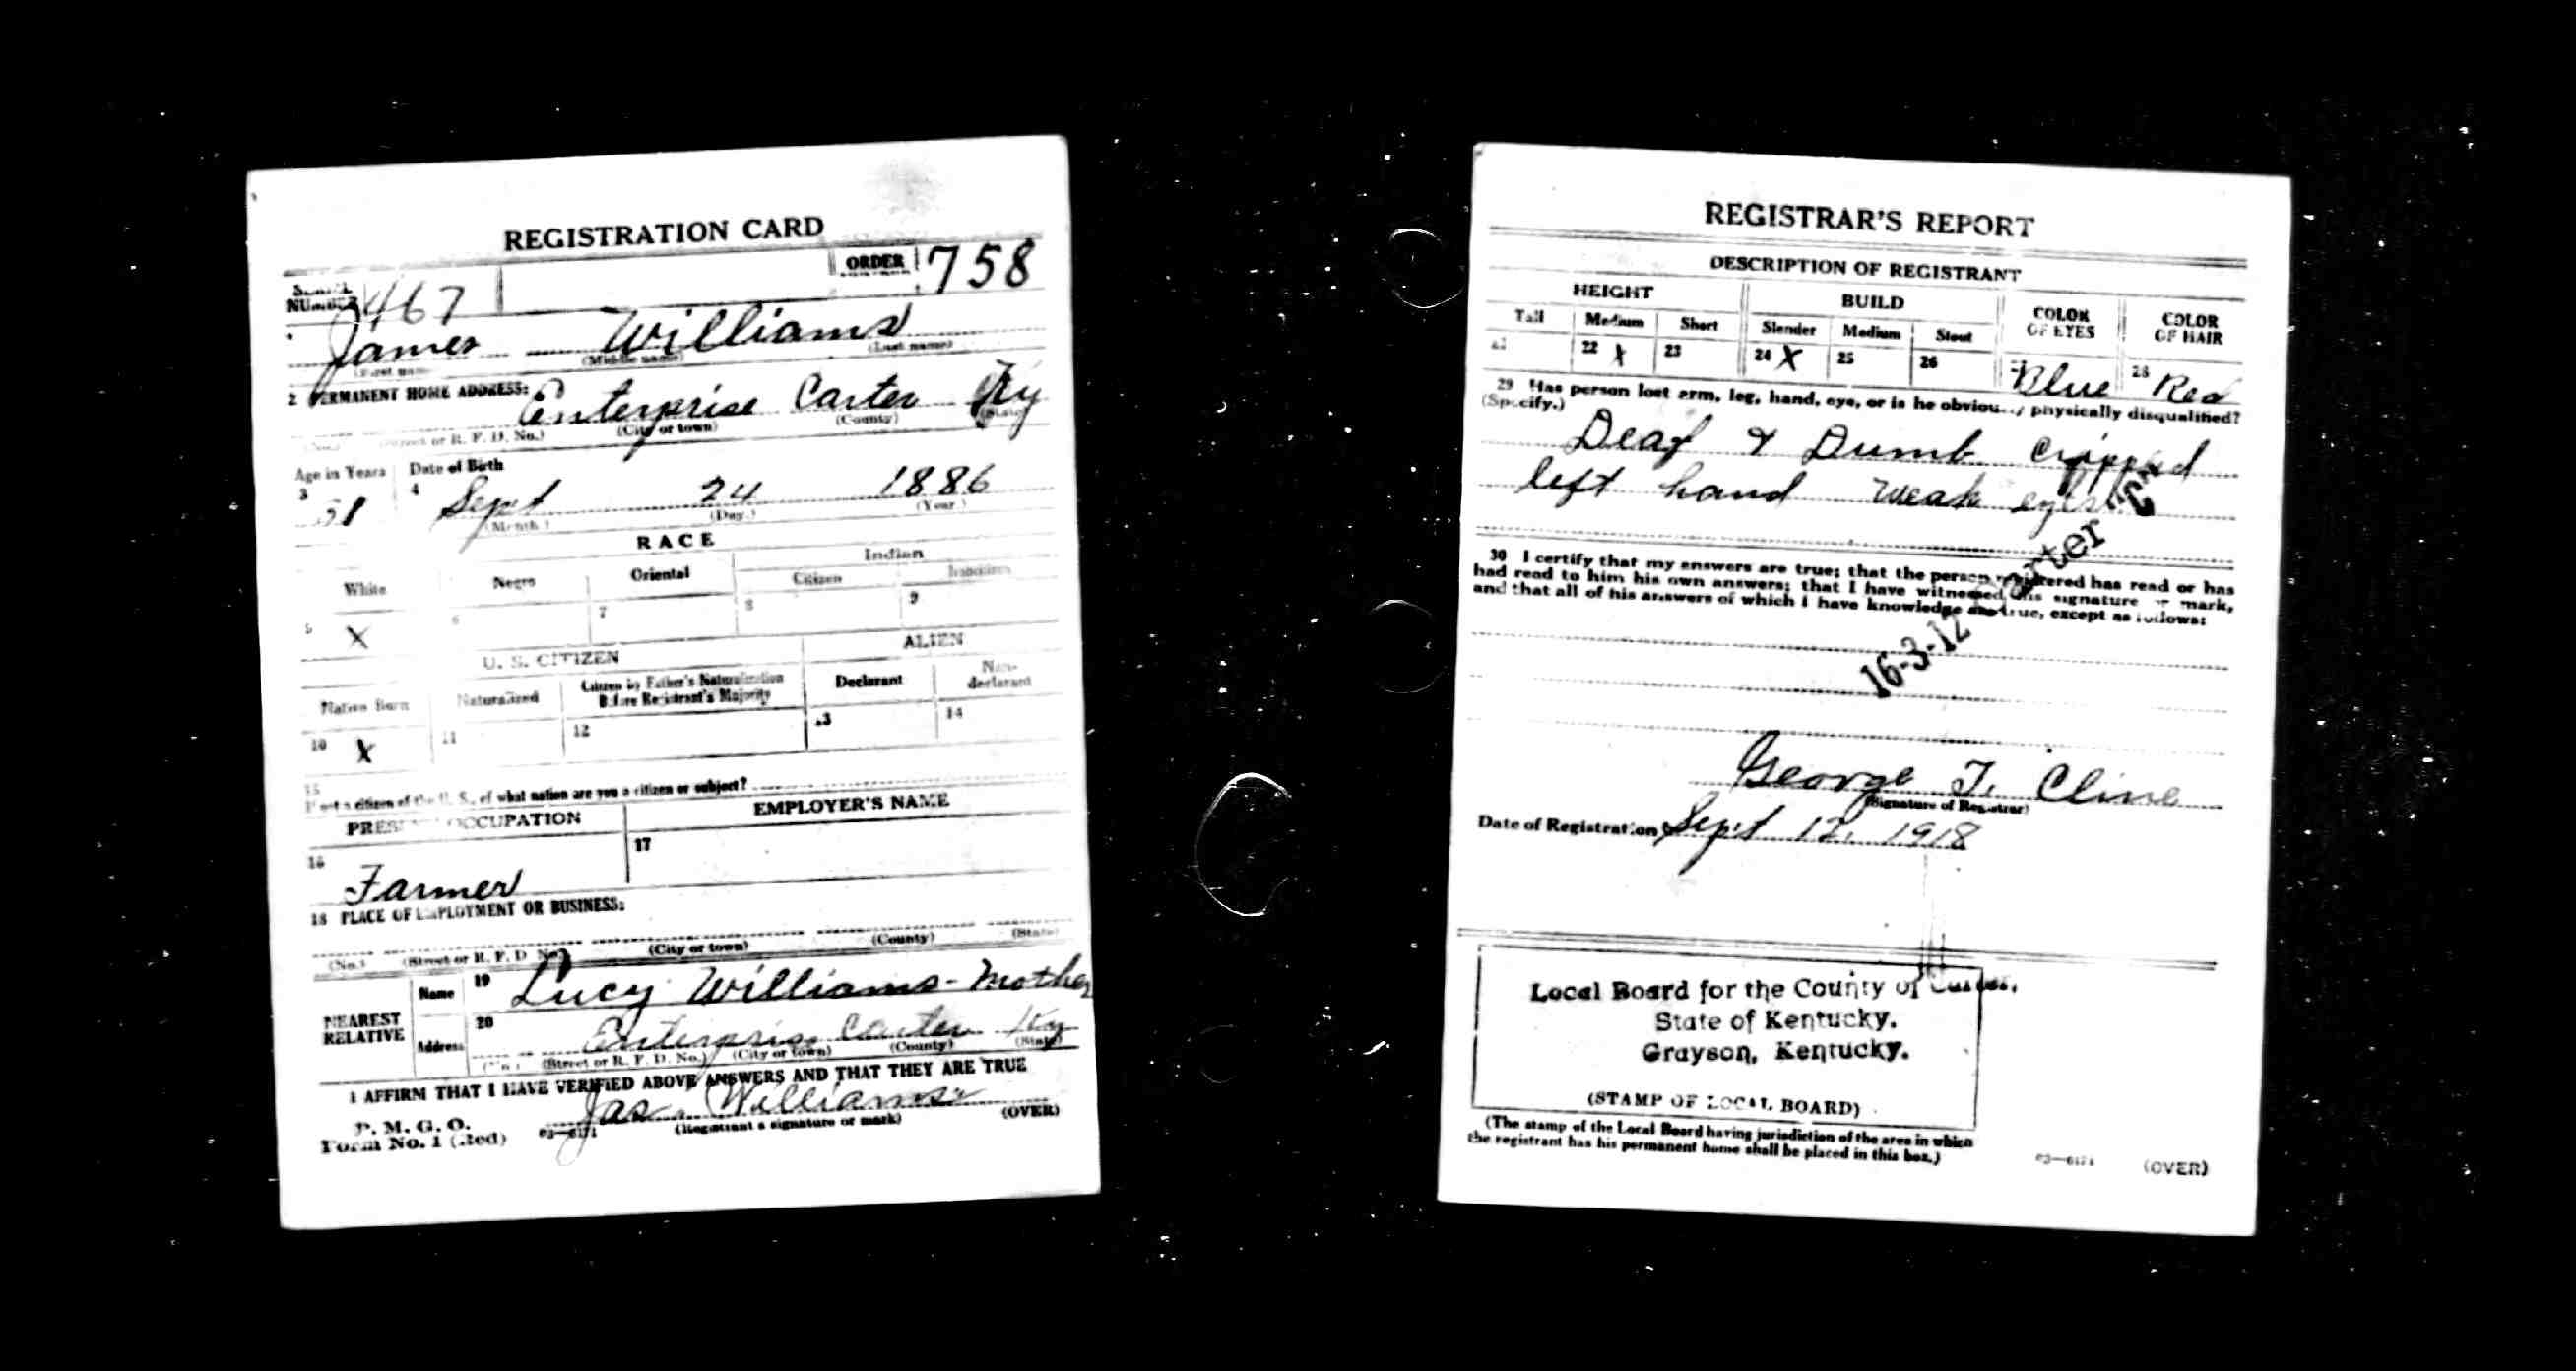 REGISTRATION CARD
SERIAL NUMBER 467 ORDER 758
James Williams
(First name) (Middle name) (Last name)
2 PERMANENT HOME ADDRESS:
Enterprise Carter Ky
(No.) (Street or R. F. D. No.) (City or town) (County) (State)
Age in Years Date of Birth
3 31 4 Sept 24 1886
(Month.) (Day.) (Year.)
RACE
White Negro Oriental Indian
Citizen
5 X 6 7 8 9
U. S. CITIZEN ALIEN
Native Born Naturalized Citizen by Father's Naturalization Before Registrant's Majority Declarant Non-declarant
10 X 11 12 13 14
15
If not a citizen of the U. S., of what nation are you a citizen or subject?
PRESENT OCCUPATION EMPLOYER'S NAME
16 Farmer 17
18 PLACE OF EMPLOYMENT OR BUSINESS:
(No.) (Street or R. F. D. No.) (City or town) (County) (State)
NEAREST RELATIVE
Name 19 Lucy Williams - Mother
Address 20 Enterprise Carter Ky
(No.) (Street or R. F. D. No.) (City or town) (County) (State)
I AFFIRM THAT I HAVE VERIFIED ABOVE ANSWERS AND THAT THEY ARE TRUE
P. M. G. O.
Form No. 1 (Red) 03—6171 Jas. Williams
(Registrant's signature or mark) (OVER)
REGISTRAR'S REPORT
DESCRIPTION OF REGISTRANT
HEIGHT BUILD COLOR OF EYES COLOR OF HAIR
Tall Medium Short Slender Medium Stout
21 22 X 23 24 X 25 26 27 Blue 28 Red
29 Has person lost arm, leg, hand, eye, or is he obviously physically disqualified?
(Specify.)
Deaf & Dumb crippled
left hand weak eyes
30 I certify that my answers are true; that the person registered has read or has
had read to him his own answers; that I have witnessed his signature or mark,
and that all of his answers of which I have knowledge are true, except as follows:
16-3-12 Carter "C"
George T. Cline
(Signature of Registrar)
Date of Registration Sept 12, 1918
Local Board for the County of Carter,
State of Kentucky.
Grayson, Kentucky.
(STAMP OF LOCAL BOARD)
(The stamp of the Local Board having jurisdiction of the area in which
the registrant has his permanent home shall be placed in this box.)
03—6171 (OVER)